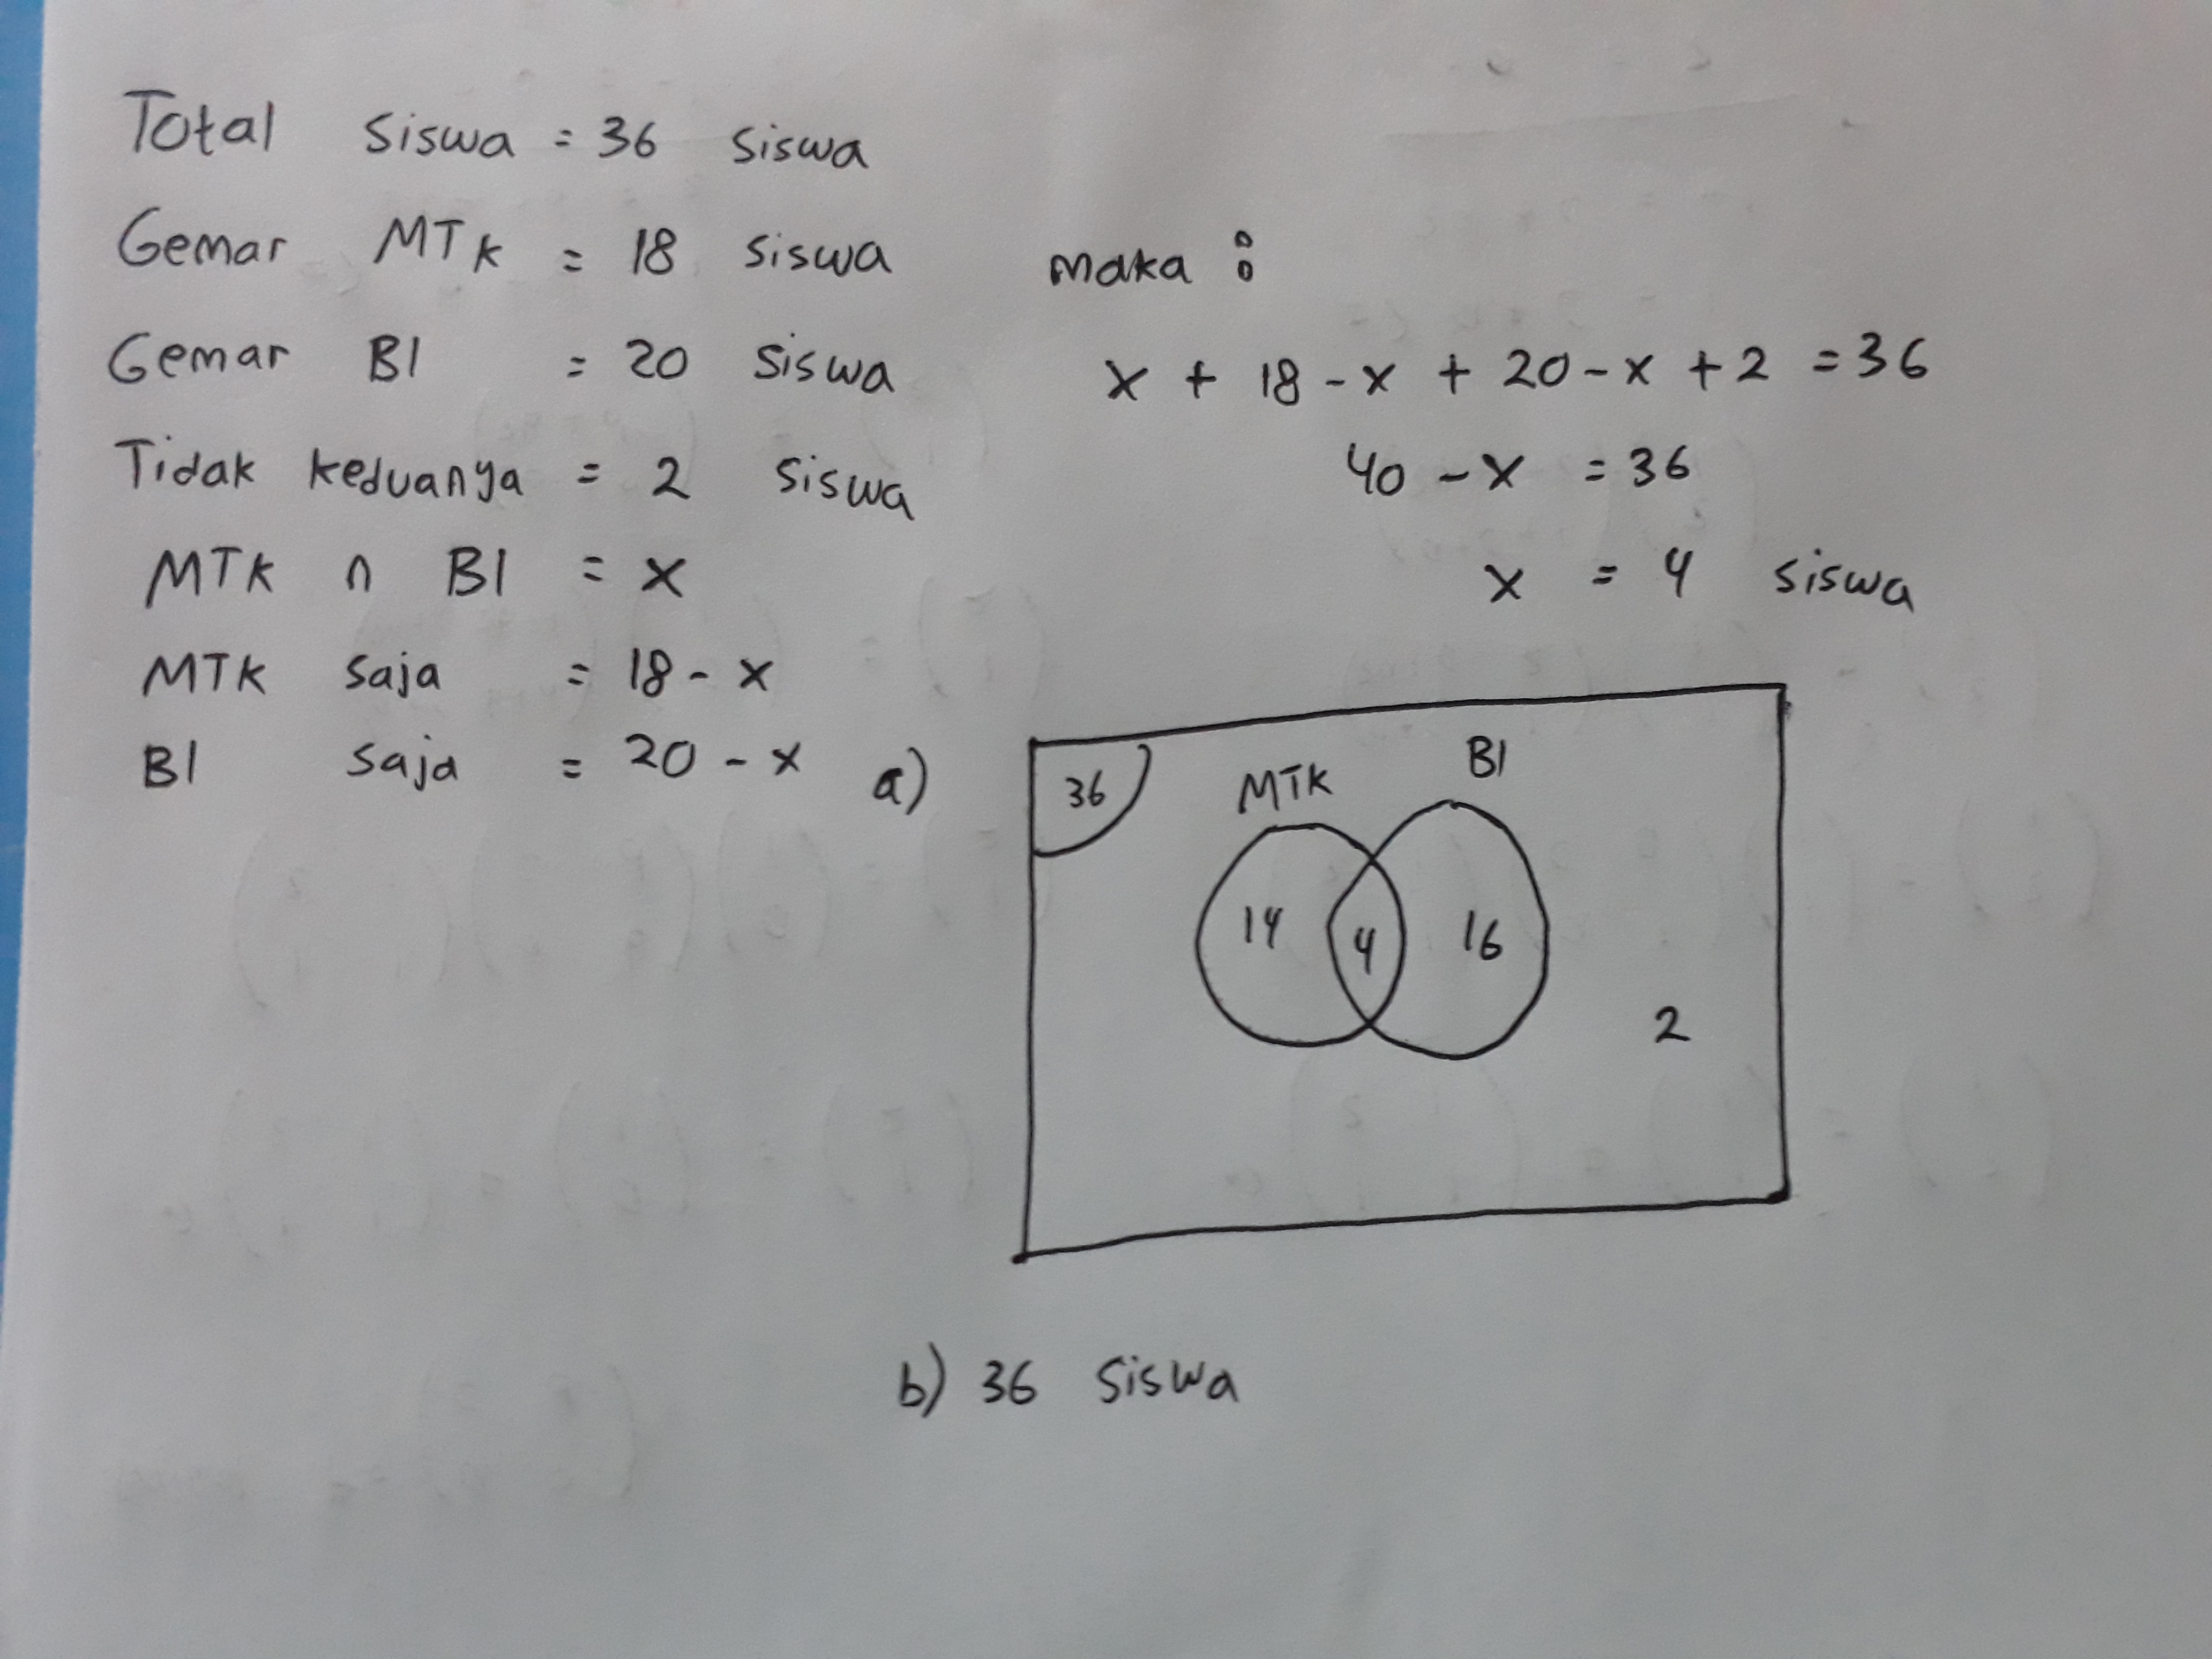 Total siswa = 36 siswa
Gemar MTK = 18 siswa
Gemar BI = 20 siswa
Tidak keduanya = 2 siswa
MTK ∩ BI = x
MTK saja = 18 - x
BI saja = 20 - x
maka :
x + 18 - x + 20 - x + 2 = 36
40 - x = 36
x = 4 siswa
a)
36
MTK
BI
14
4
16
2
b) 36 siswa